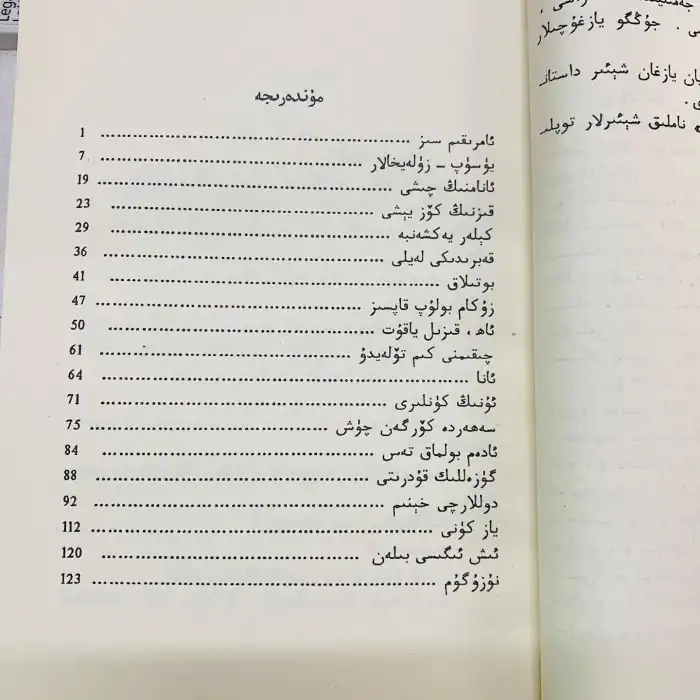 مۇندەرىجە
ئامرىقىم سىز ........ 1
يۈسۈپ ـ زۇلەيخالار ........ 7
ئانامنىڭ چىشى ........ 19
قىزنىڭ كۆز يېشى ........ 23
كېلەر يەكشەنبە ........ 29
قەبرىدىكى لەيلى ........ 36
بوتىلاق ........ 41
زۇكام بولۇپ قاپسىز ........ 47
ئاھ، قىزىل ياقۇت ........ 50
چىقىمنى كىم تۆلەيدۇ ........ 61
ئانا ........ 64
ئۇنىڭ كۈنلىرى ........ 71
سەھەردە كۆرگەن چۈش ........ 75
ئادەم بولماق تەس ........ 84
گۈزەللىك قۇدرىتى ........ 88
دوللارچى خېنىم ........ 92
ياز كۈنى ........ 112
ئىش ئىگىسى بىلەن ........ 120
نۇزۇگۇم ........ 123
ى . جۇڭگو يازغۇچىلار
يازغان شېئىر داستان
ناملىق شېئىرلار توپلى